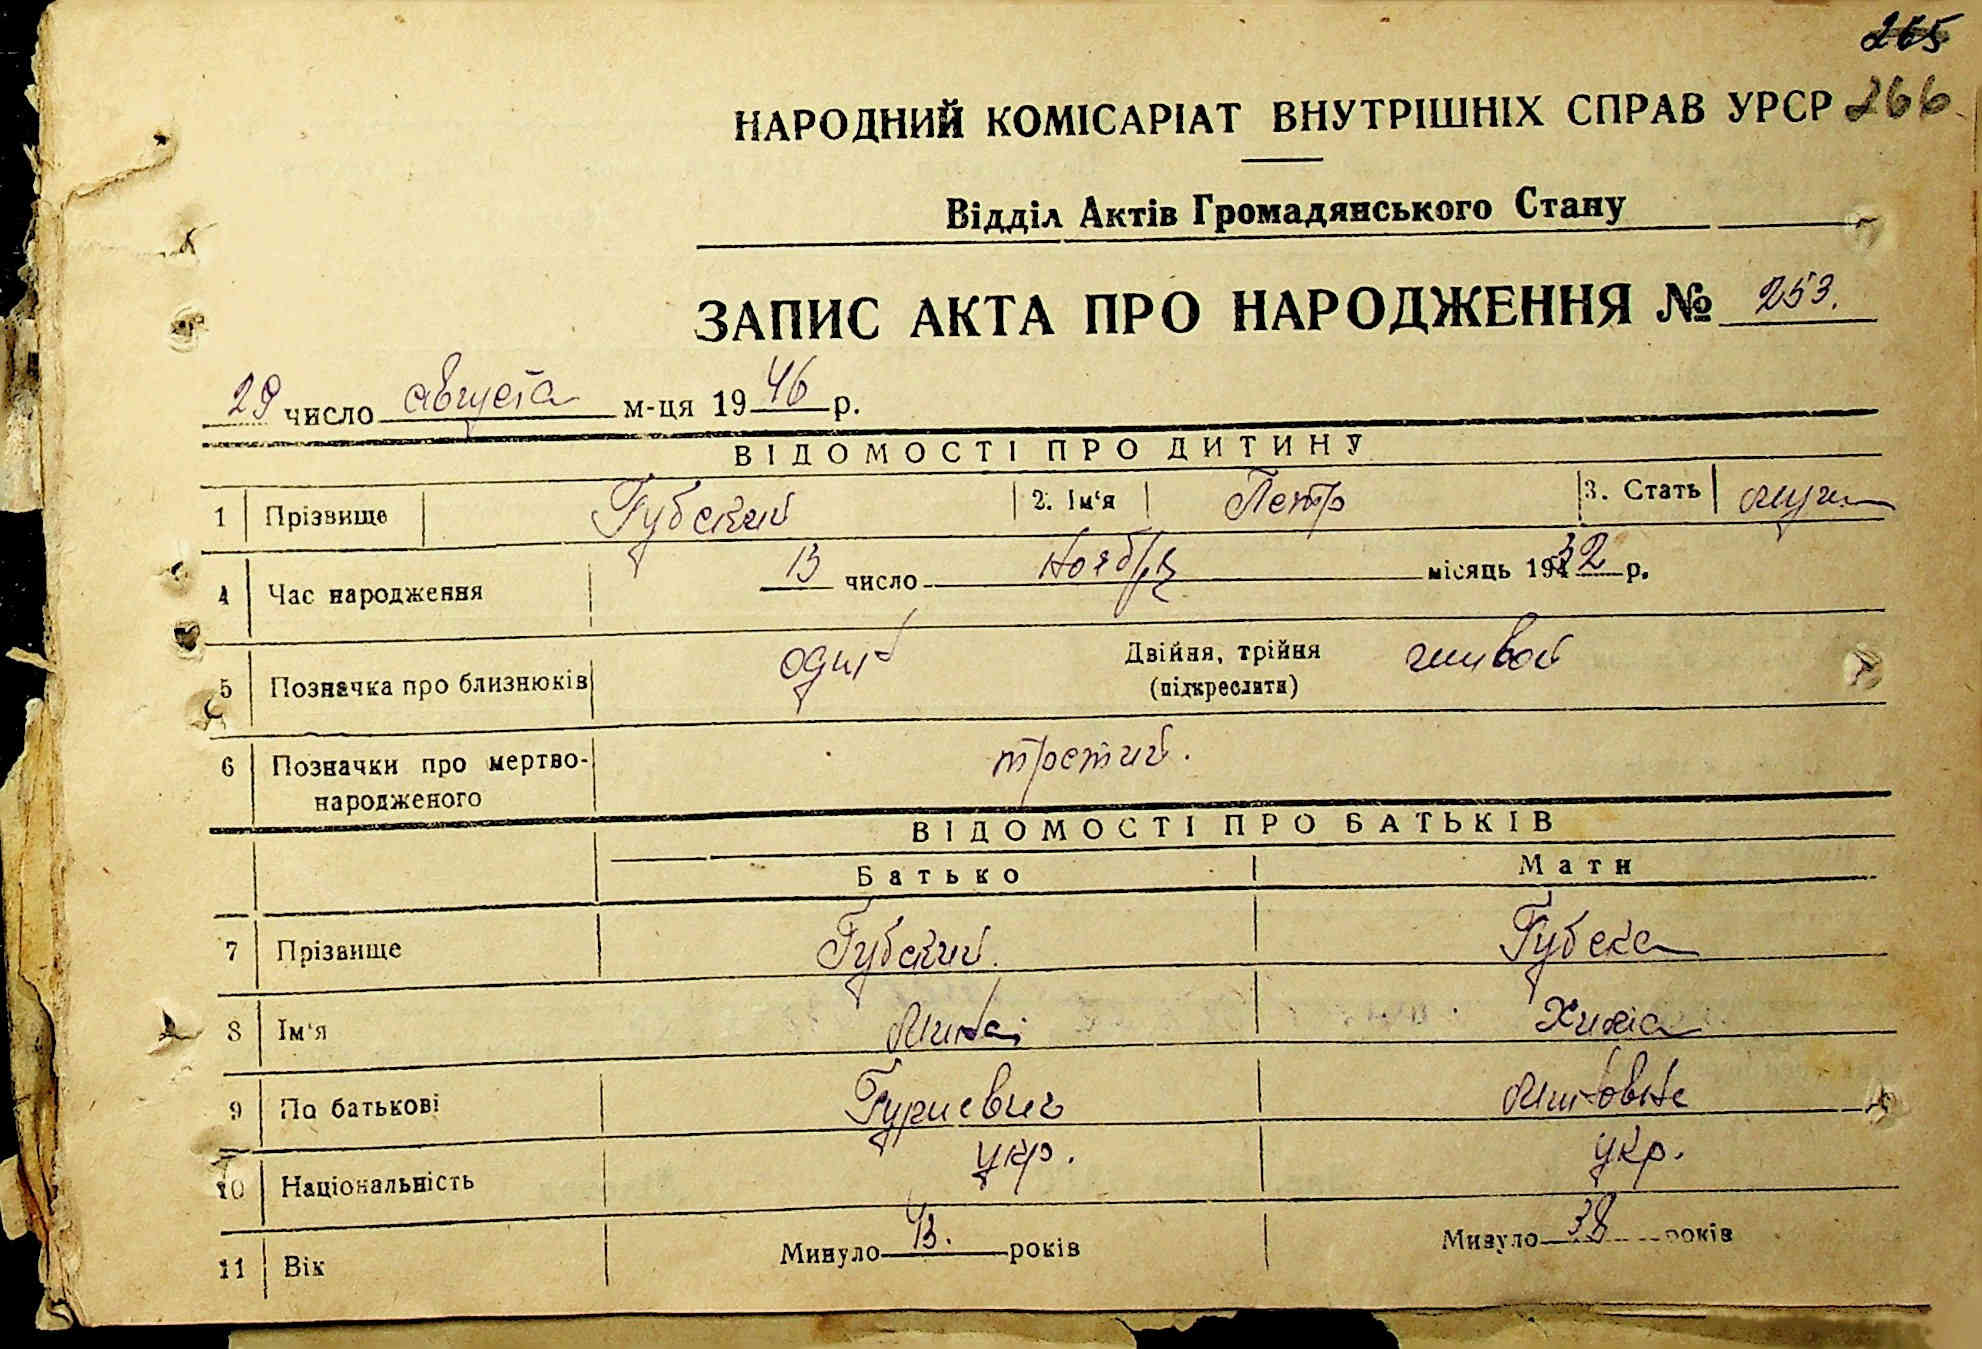 265
НАРОДНИЙ КОМІСАРІАТ ВНУТРІШНІХ СПРАВ УРСР 266
Відділ Актів Громадянського Стану
ЗАПИС АКТА ПРО НАРОДЖЕННЯ № 253.
29 число августа м-ця 1946 р.
ВІДОМОСТІ ПРО ДИТИНУ
1 Прізвище Губский 2. Ім'я Петр 3. Стать муж
4 Час народження 13 число Ноября місяць 1932 р.
5 Позначка про близнюків один Двійня, трійня живой
(підкреслити)
6 Позначки про мертво- третий.
народженого
ВІДОМОСТІ ПРО БАТЬКІВ
Батько Мати
7 Прізвище Губский. Губска
8 Ім'я
9 По батькові Гуриевич
10 Національність укр. укр.
11 Вік Минуло 43. років Минуло 38 років